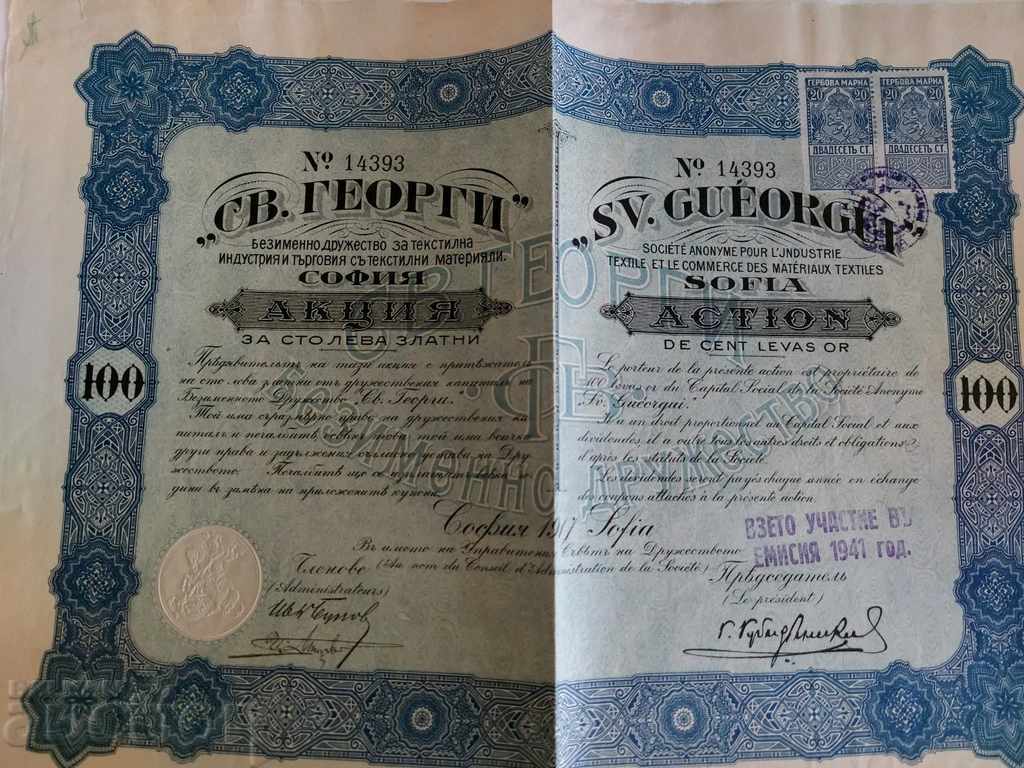 № 14393
„СВ. ГЕОРГИ"
БЕЗИМЕННО ДРУЖЕСТВО ЗА ТЕКСТИЛНА
ИНДУСТРИЯ И ТЪРГОВИЯ СЪ ТЕКСТИЛНИ МАТЕРИЯЛИ.
СОФИЯ
АКЦИЯ
ЗА СТО ЛЕВА ЗЛАТНИ
100
Предявительтъ на тази акция е притежатель
на сто лева златни отъ дружествения капиталъ на
Безименното Дружество "Св. Георги."
Той има съразмерно право на дружествения ка-
питалъ и печалбитѣ, освѣнъ това той има всички
други права и задължения съгласно устава на Дру-
жеството. Печалбитѣ ще се изплащатъ всяка го-
дина въ замѣна на приложенитѣ купони.
ГЕРБОВА МАРКА
20 20
ДВАДЕСЕТЬ СТ.
ГЕРБОВА МАРКА
20 20
ДВАДЕСЕТЬ СТ.
№ 14393
„SV. GUÉORGUI"
SOCIÉTÉ ANONYME POUR L'INDUSTRIE
TEXTILE ET LE COMMERCE DES MATÉRIAUX TEXTILES
SOFIA
ACTION
DE CENT LEVAS OR
100
Le porteur de la présente action est propriétaire de
100 levas or du Capital Social de la Société Anonyme
"Sv. Guéorgui."
Il a un droit proportionel au Capital Social et aux
dividendes, il a outre tous les autres droits et obligations
d'après les statuts de la Société.
Les dividendes seront payés chaque année en échange
des coupons attachés à la présente action.
СВ. ГЕОРГИ
БЕЗИМЕННО ДРУЖЕСТВО
София 1917 Sofia
ВЗЕТО УЧАСТИЕ ВЪ
ЕМИСИЯ 1941 ГОД.
Въ името на Управителния Съвѣтъ на Дружеството
(Au nom du Conseil d'Administration de la Société)
Членове
(Administrateurs)
Прѣдседатель
(Le président)